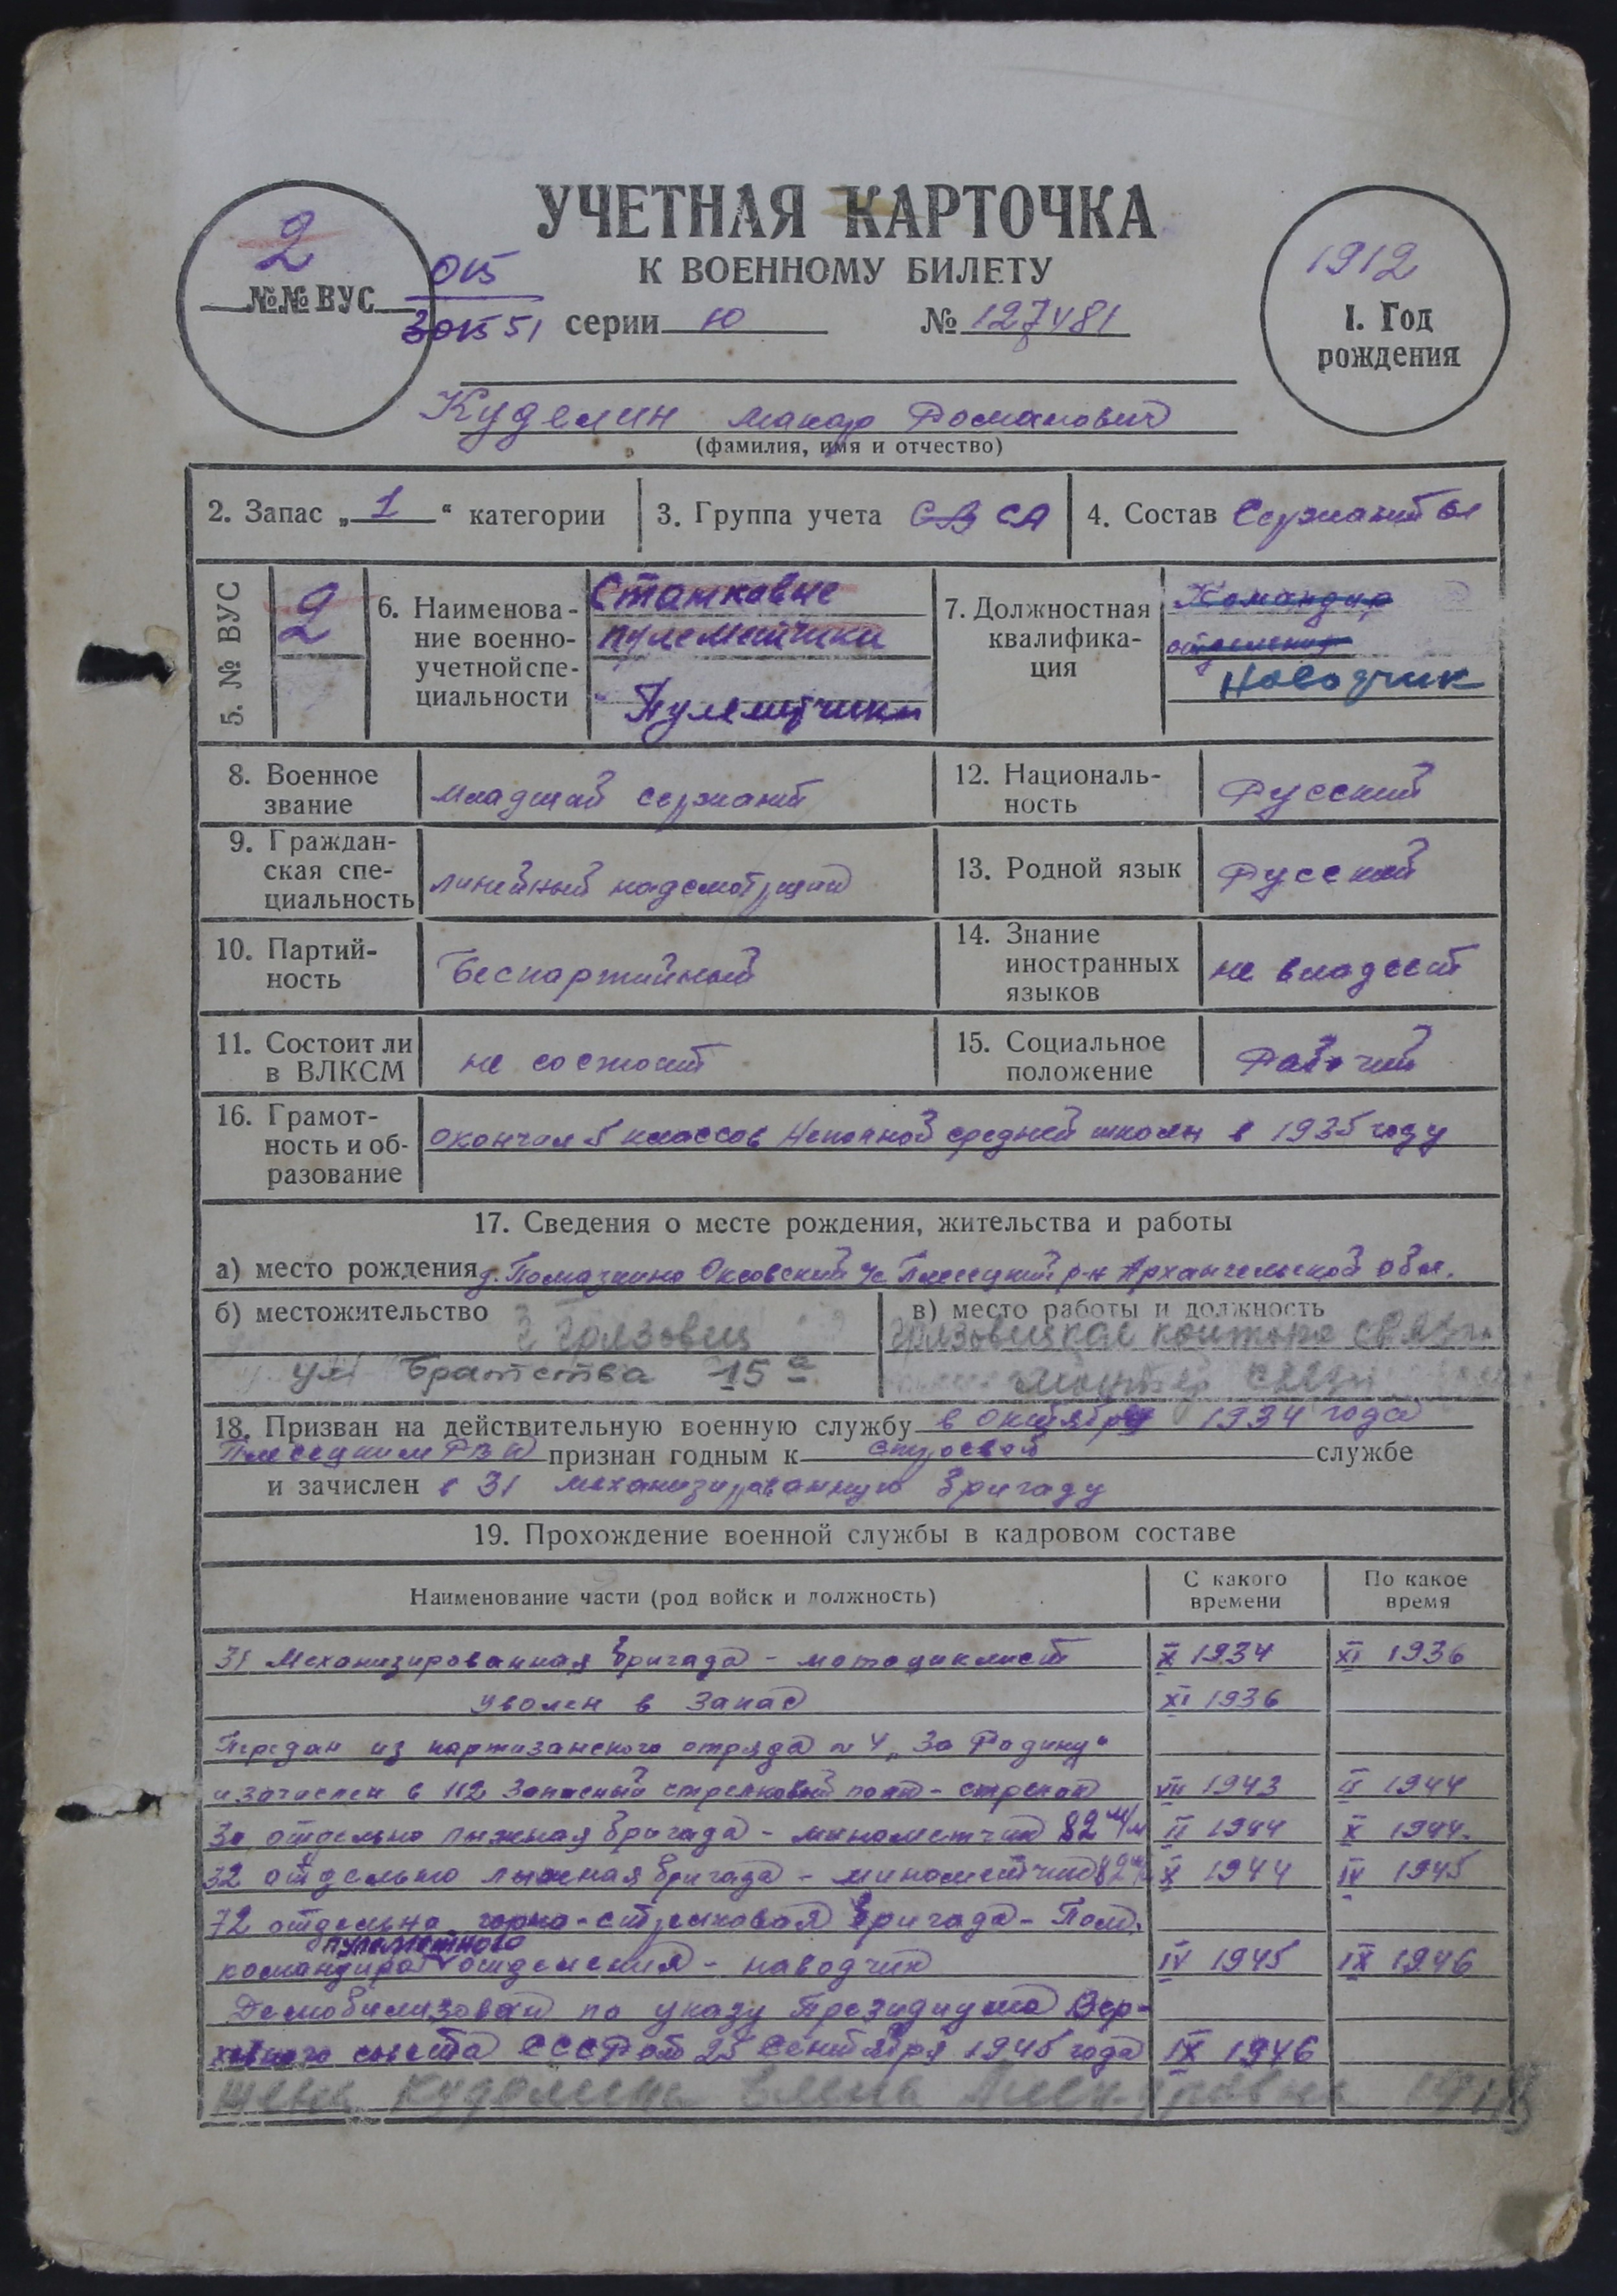 УЧЕТНАЯ КАРТОЧКА
К ВОЕННОМУ БИЛЕТУ
2
№№ ВУС
015
301551 серии ю № 127481
1912
1. Год
рождения
Куделин Макар Романович
(фамилия, имя и отчество)
2. Запас „ 1 “ категории
3. Группа учета СВ СА
4. Состав Сержанты
5. № ВУС
2
6. Наименова-
ние военно-
учетной спе-
циальности
Станковые
пулеметчики
Пулеметчики
7. Должностная
квалифика-
ция
Командир
отделения
Наводчик
8. Военное
звание
Младший сержант
12. Националь-
ность
Русский
9. Граждан-
ская спе-
циальность
линейный надсмотрщик
13. Родной язык
Русский
10. Партий-
ность
Беспартийный
14. Знание
иностранных
языков
не владеет
11. Состоит ли
в ВЛКСМ
не состоит
15. Социальное
положение
Рабочий
16. Грамот-
ность и об-
разование
окончил 5 классов Неполной средней школы в 1935 году
17. Сведения о месте рождения, жительства и работы
а) место рождения д. Оксовский Плесецкий р-н Архангельской обл.
б) местожительство г Грязовец
ул Братства 15 а
в) место работы и должность
Грязовецкая контора связи
монтер связи
18. Призван на действительную военную службу в Октябре 1934 года
Плесецким РВК признан годным к строевой службе
и зачислен в 31 механизированную бригаду
19. Прохождение военной службы в кадровом составе
Наименование части (род войск и должность)
С какого
времени
По какое
время
31 Механизированная бригада - мотоциклист X 1934 XI 1936
Уволен в Запас XI 1936
Передан из партизанского отряда №4 „За Родину“
и зачислен в 112 Запасный стрелковый полк - стрелок VII 1943 II 1944
30 отдельно лыжная бригада - минометчик 82 м/м II 1944 X 1944.
32 отдельно лыжная бригада - минометчик 82 м/м X 1944 IV 1945
72 отдельна горно-стрелковая бригада - Пом.
пулеметного
командира отделения - наводчик IV 1945 IX 1946
Демобилизован по указу Президиума Вер-
ховного совета СССР от 25 Сентября 1945 года IX 1946
жена Куделина